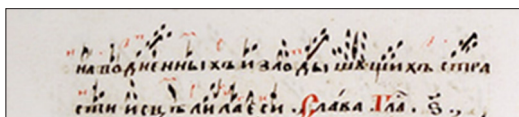 наводненныхъ и злодышꙋщихъ стра
сти исцѣлила еси. Слава Глаⷭ҇ ѕ҃.